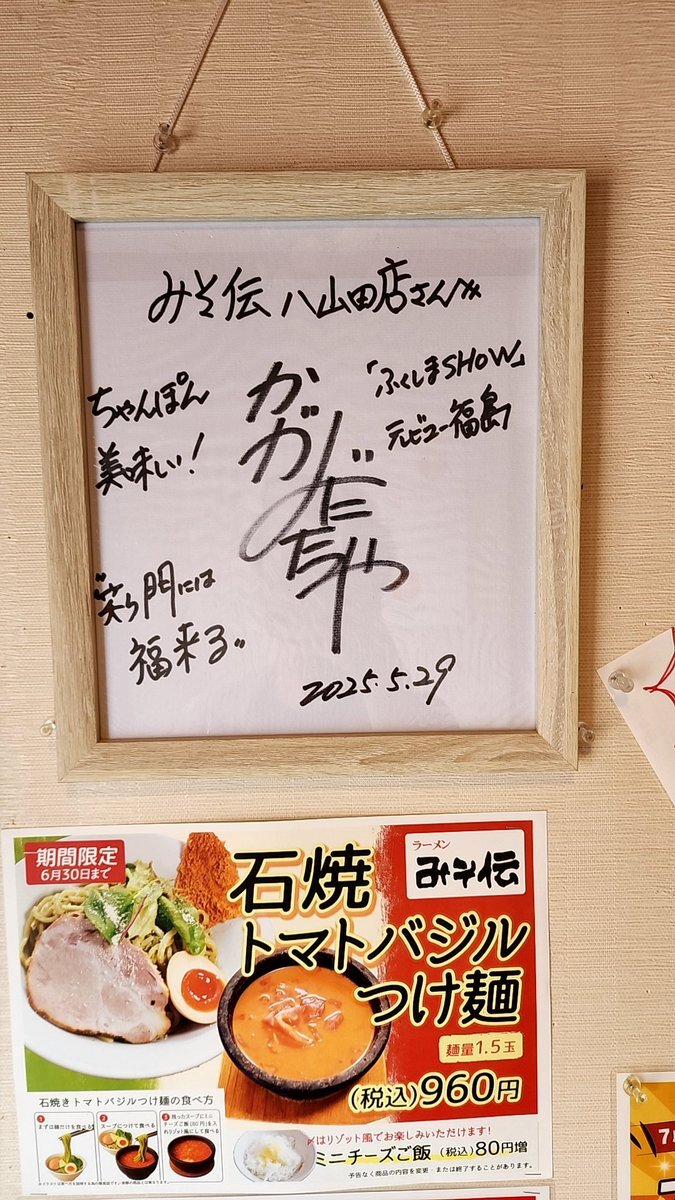 みそ伝 八山田店さん江
「ふくしまSHOW」
テレビュー福島
ちゃんぽん
美味しい!
"笑う門には
福来る"
2025.5.29
期間限定
6月30日まで
ラーメン
みそ伝
石焼
トマトバジル
つけ麺
麺量1.5玉
(税込)960円
石焼きトマトバジルつけ麺の食べ方
1
まずは麺だけを食べる
2
スープにつけて食べる
3
残ったスープにミニ
チーズご飯(80円)を入
れリゾット風にして食べる
〆はリゾット風でお楽しみいただけます!
ミニチーズご飯 (税込)80円増
予告なく商品の内容を変更・または終了することがあります。